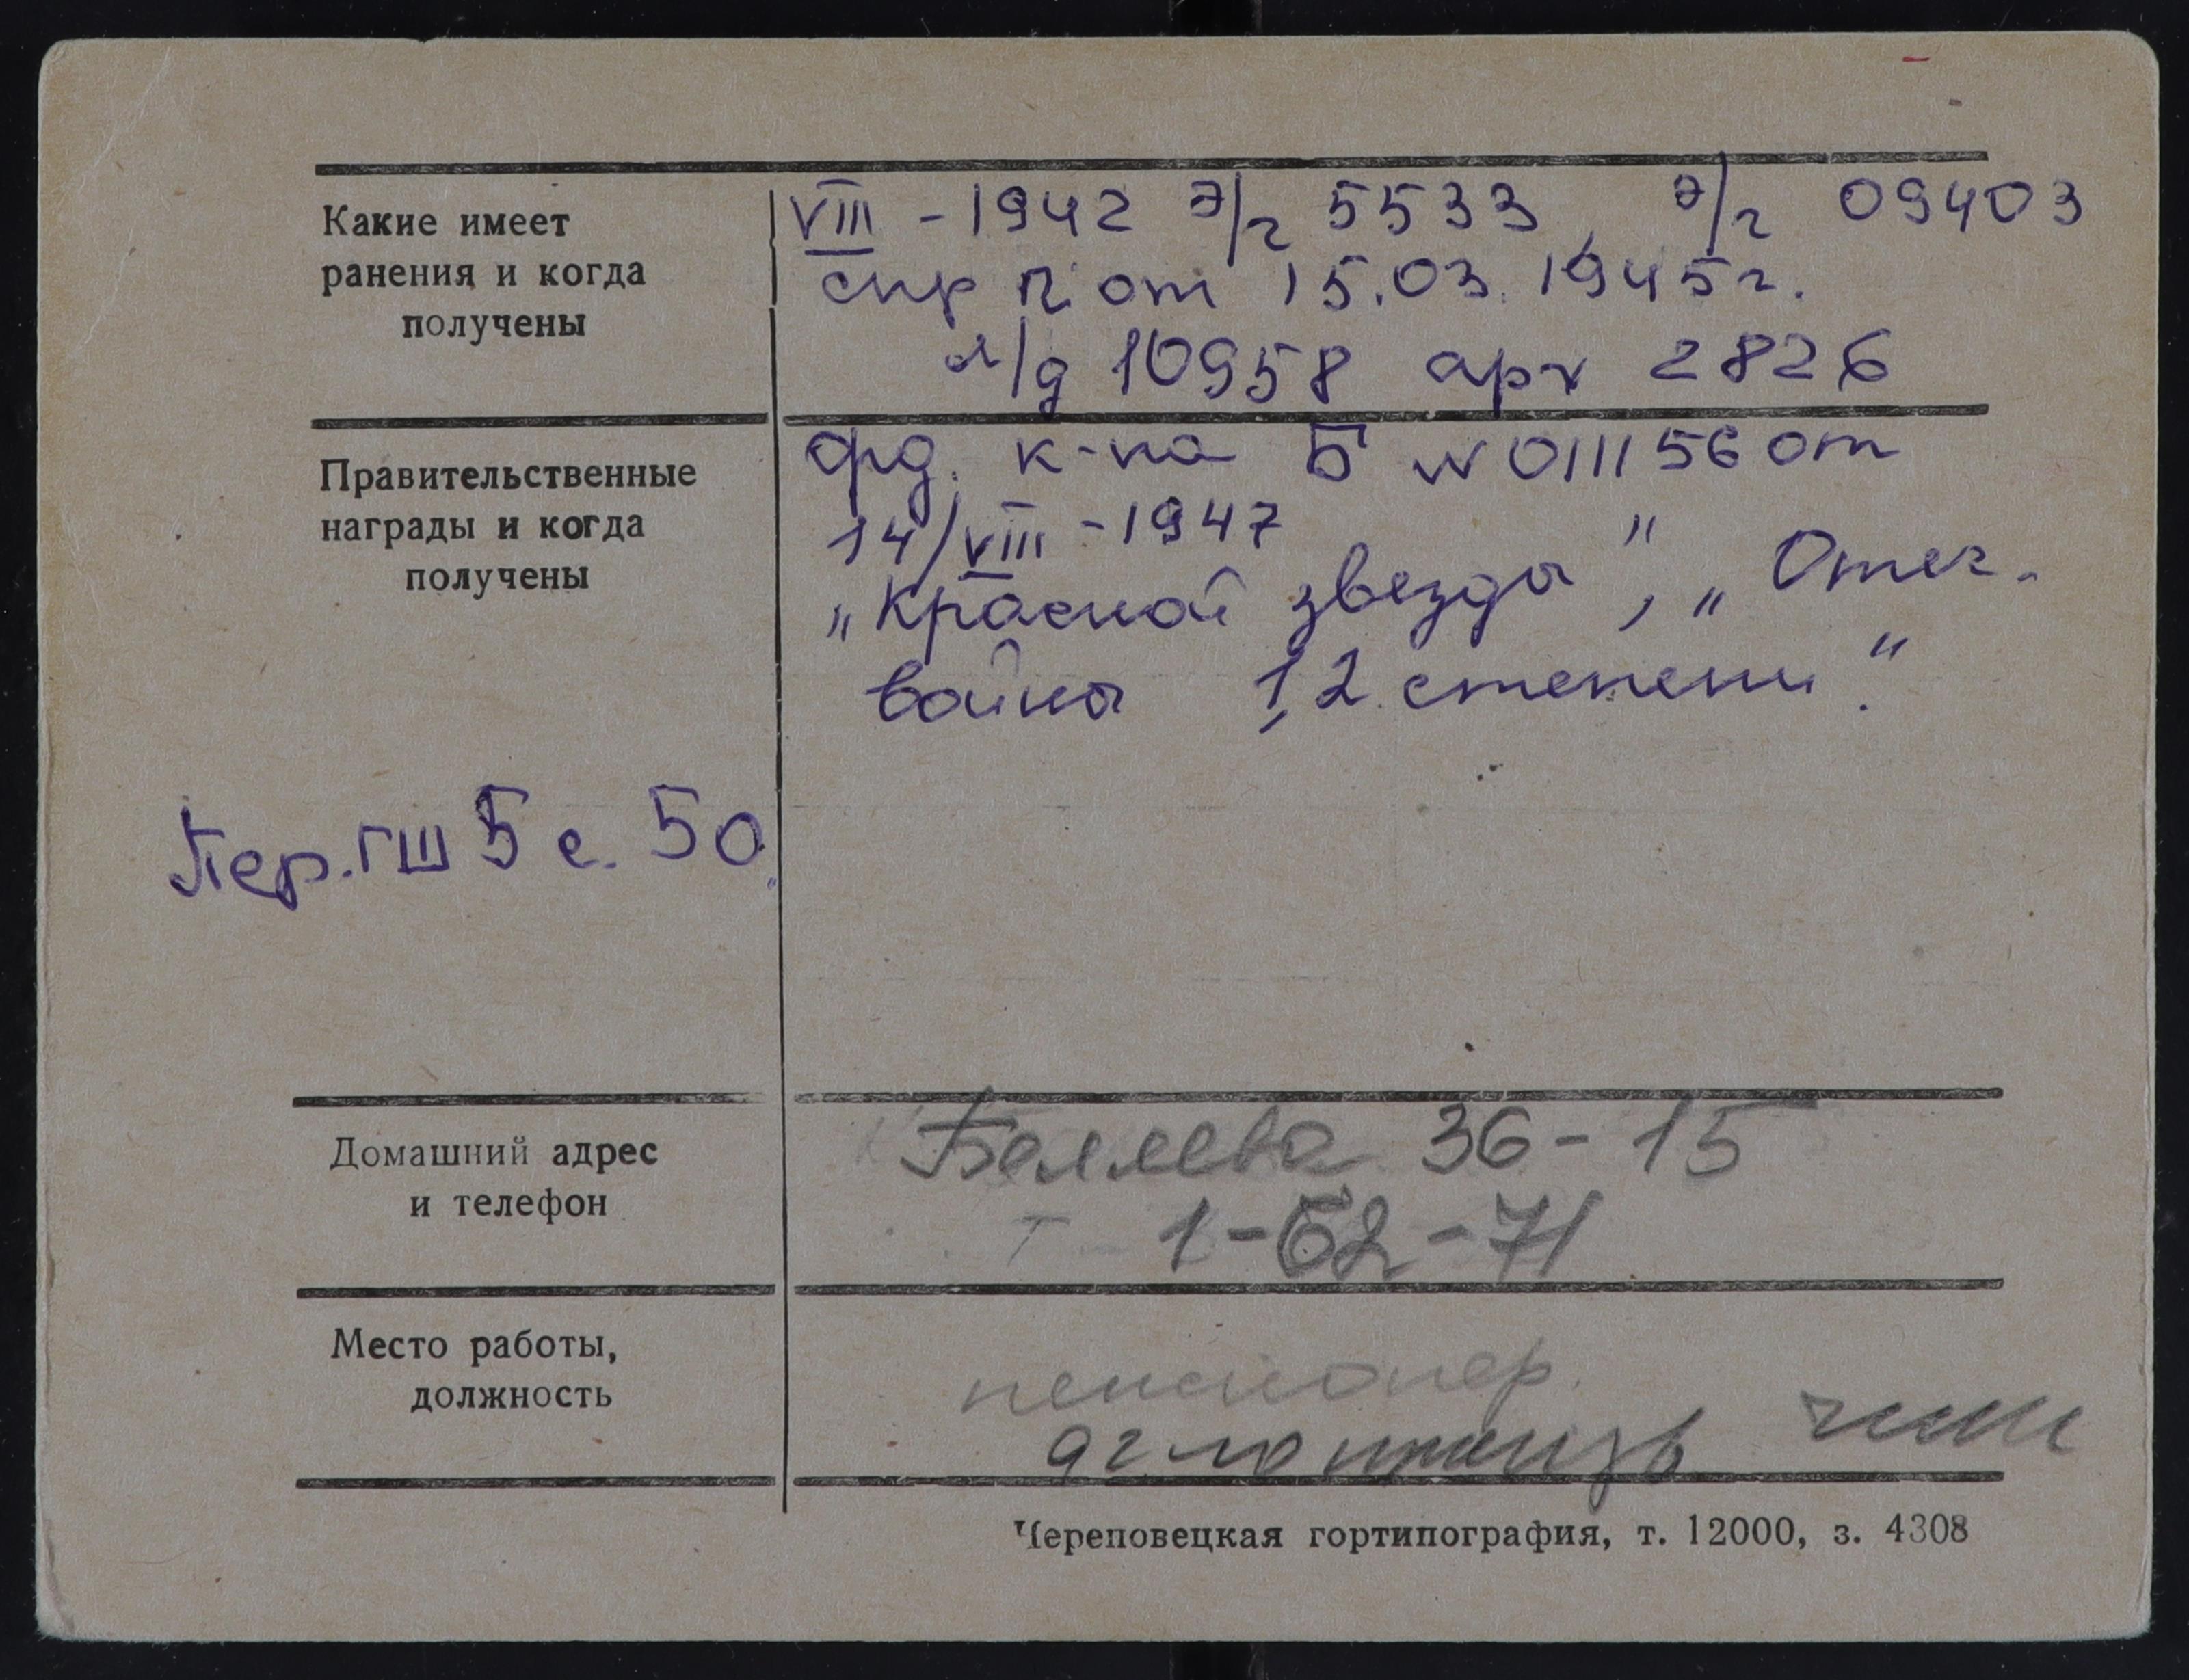 Какие имеет
ранения и когда
получены
VIII - 1942 э/г 5533, э/г 09403
спр от 15.03.1945г.
л/д 10958 арх 2826
Правительственные
награды и когда
получены
орд. к-ка Б № 0111156 от
14/VIII - 1947
„Красной звезды", „Отеч.
войны 1,2 степени."
Пер. ГШ 5 с. 50.
Домашний адрес
и телефон
Беляева 36 - 15
т 1-62-71
Место работы,
должность
пенсионер.
Череповецкая гортипография, т. 12000, з. 4308